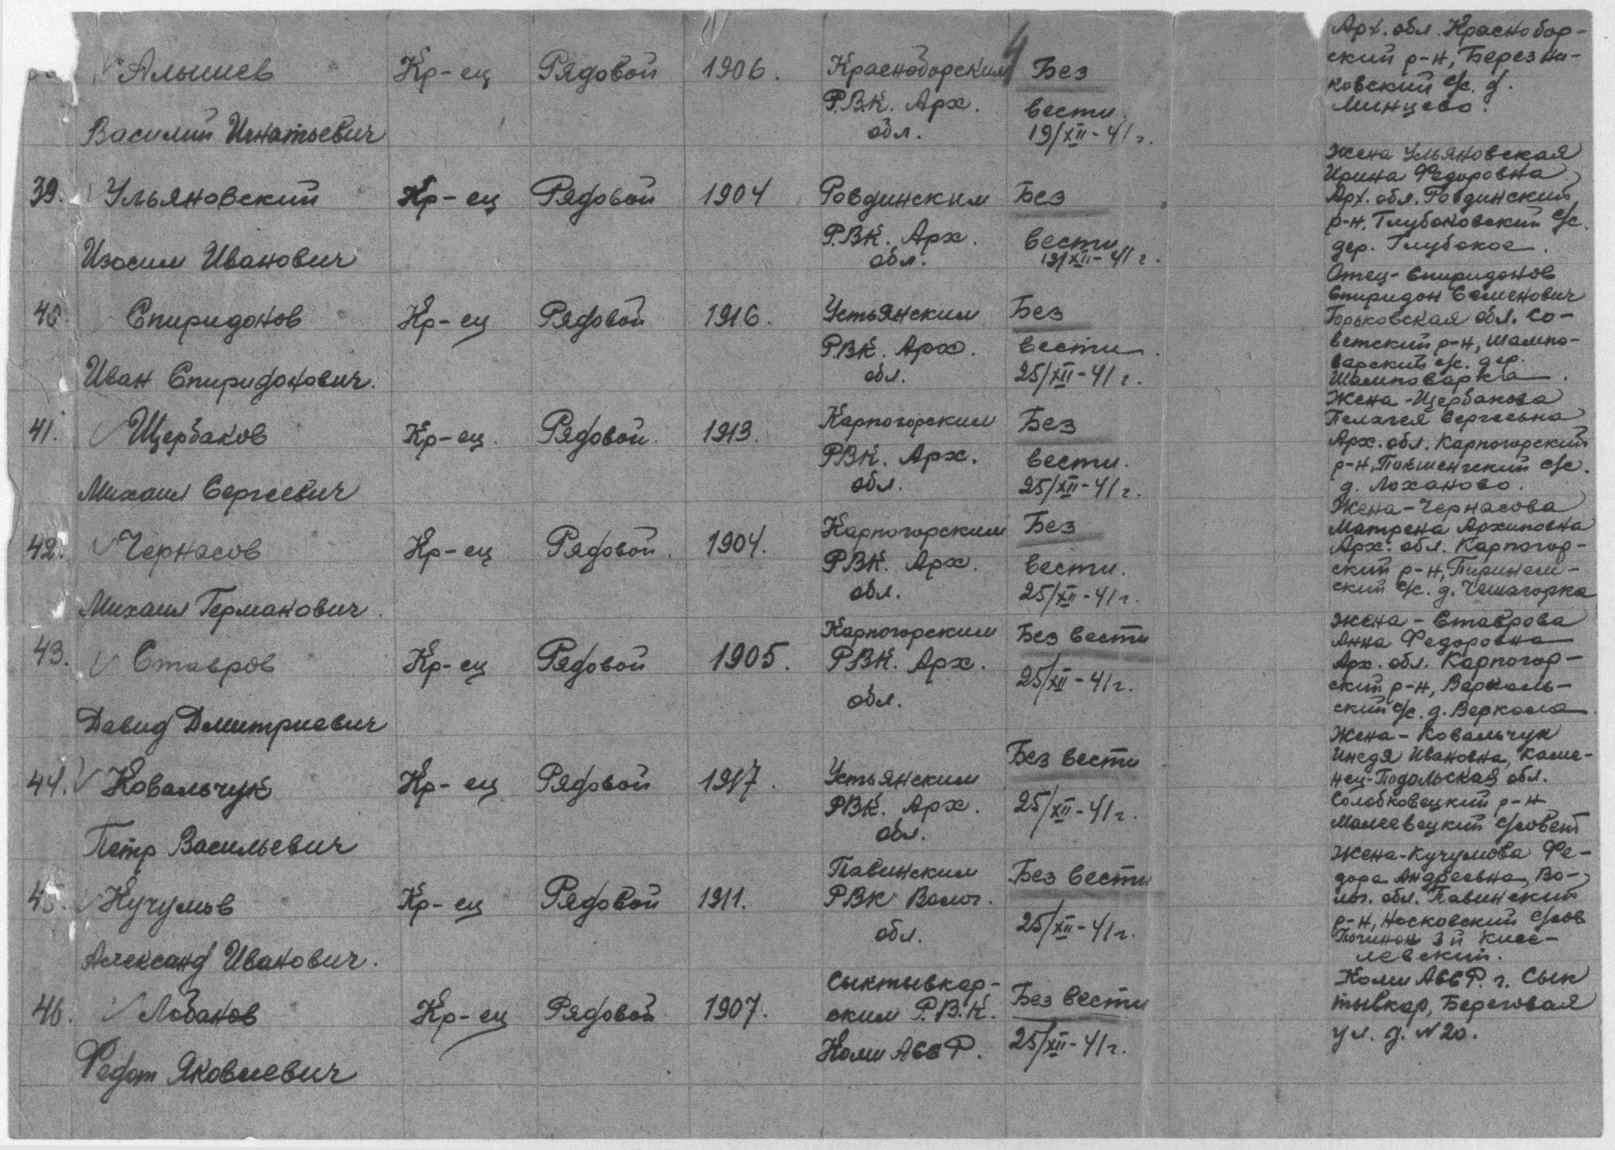 Алышев Кр-ец Рядовой 1906. Красноборским Без
Василий Игнатьевич РВК. Арх. обл. вести 19/XII-41г.
Арх. обл. Краснобор-
ский р-н, Березна-
ковский с/с. д.
Минцево.
39. Ульяновский Кр-ец Рядовой 1904 Ровдинским Без
Изосим Иванович РВК. Арх. обл. вести 19/XII-41г.
Жена Ульяновская
Ирина Федоровна
Арх. обл. Ровдинский
р-н, Глубоковский с/с.
дер. Глубокое.
40. Спиридонов Кр-ец Рядовой 1916. Устьянским Без
Иван Спиридонович. РВК. Арх. обл. вести 25/XII-41г.
Отец-Спиридонов
Спиридон Семенович
Горьковская обл. Со-
ветский р-н, Шампо-
варский с/с. дер.
Шамповарка.
41. Щербаков Кр-ец. Рядовой. 1913. Карпогорским Без
Михаил Сергеевич РВК. Арх. обл. вести. 25/XII-41г.
Жена-Щербакова
Пелагея Сергеевна
Арх. обл. Карпогорский
р-н, Покшенгский с/с.
д. Лоханово.
42. Чернасов Кр-ец Рядовой. 1904. Карпогорским Без
Михаил Германович. РВК. Арх. обл. вести. 25/XII-41г.
Жена-Чернасова
Матрена Архиповна
Арх. обл. Карпогор-
ский р-н, Пиринем-
ский с/с. д. Чешагорка
43. Ставров Кр-ец Рядовой 1905. Карпогорским Без вести
Давид Дмитриевич РВК. Арх. обл. 25/XII-41г.
Жена-Ставрова
Анна Федоровна
Арх. обл. Карпогор-
ский р-н, Веркаль-
ский с/с. д. Веркола
44. Ковальчук Кр-ец Рядовой 1917. Устьянским Без вести
Петр Васильевич РВК. Арх. обл. 25/XII-41г.
Жена-Ковальчук
Ивановна, Каме-
нец-Подольская обл.
Солобковецкий р-н
Малеевецкий с/совет
45. Кучумов Кр-ец Рядовой 1911. Павинским Без вести
Александр Иванович. РВК Волог. обл. 25/XII-41г.
Жена-Кучумова Фе-
дора Андреевна, Во-
лог. обл. Павинский
р-н, Носковский с/сов
Починок 3й Кисе-
левский.
46. Лобанов Кр-ец Рядовой 1907. Сыктывкар- Без вести
Федот Яковлевич ским Р.В.К. Коми АССР. 25/XII-41г.
Коми АССР. г. Сык
тывкар, Береговая
ул. д. N20.